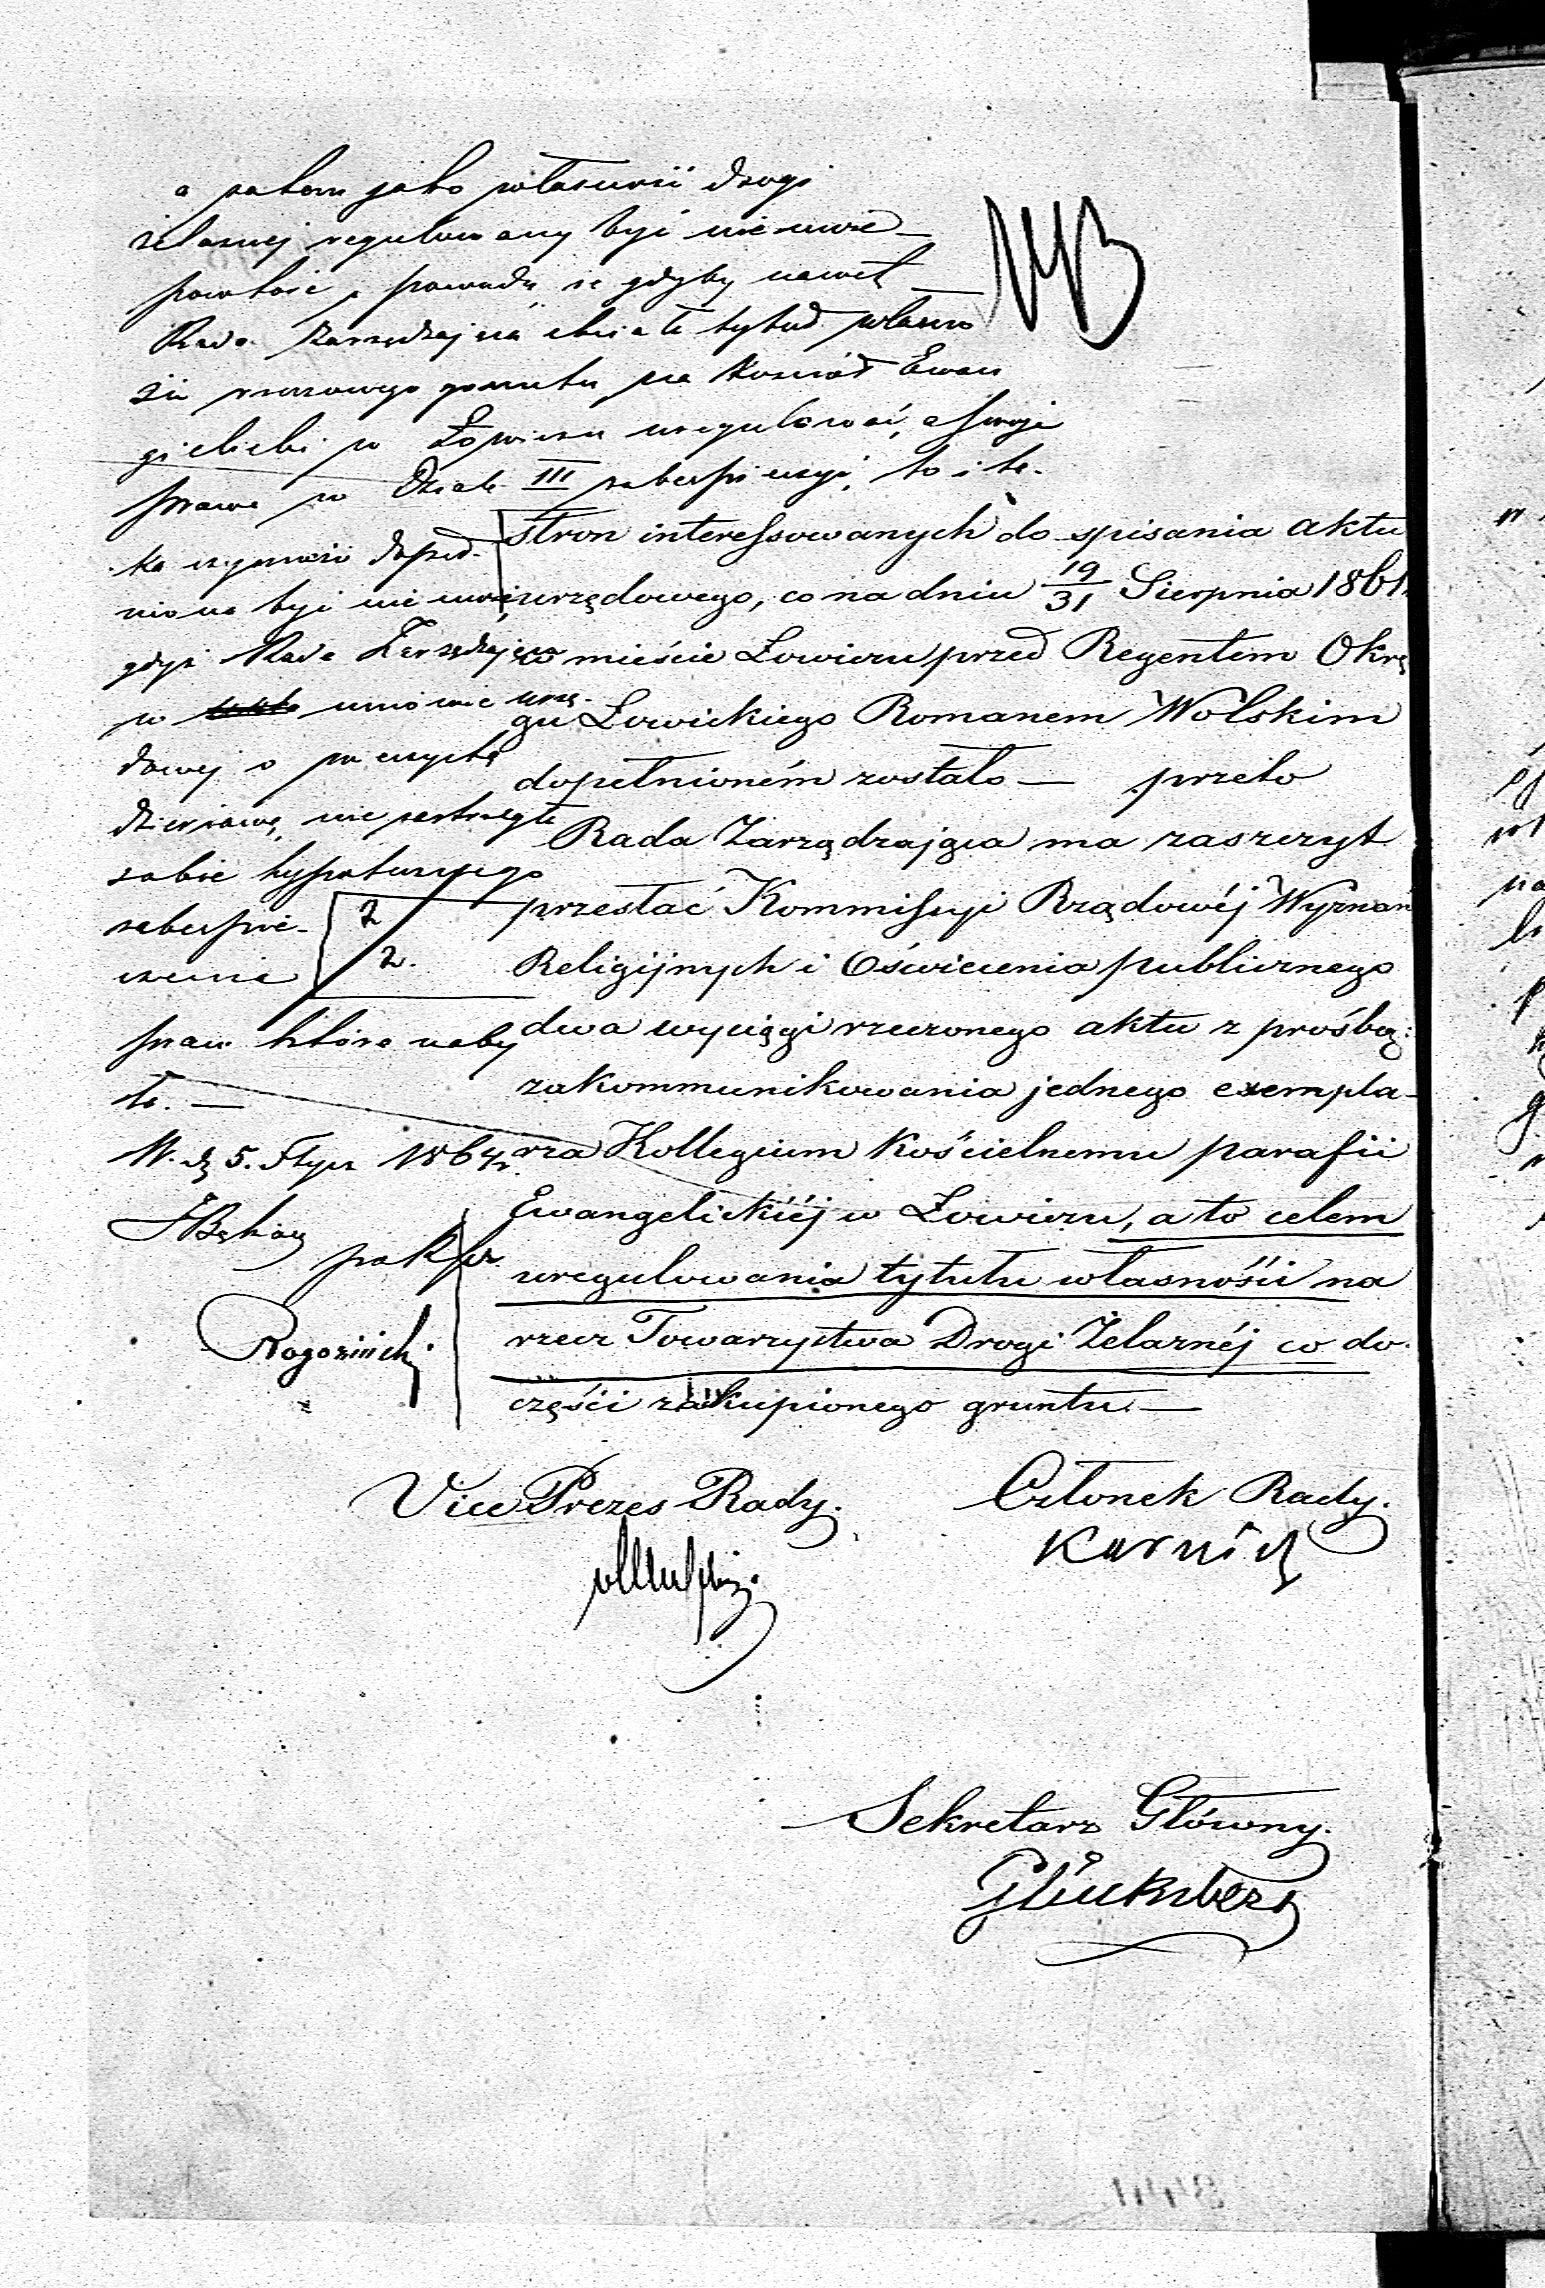 a zatem jako własność drogi
żelaznej regulowany być nie może
powtóre z powodu, że gdyby nawet
Rada Zarządzająca chciała tytuł własno
ści rzeczowego gruntu na Kościół Ewan
gielicki w Łowiczu uregulować, a swoje
prawa w Dziale III zabezpieczyć, to i ta
ka czynność dopeł-
niona być nie może
gdyż Rada Zarządzająca
w umowie urzę-
dowej o wieczystą
dzierżawę, nie zastrzegła
sobie hypotecznego
zabezpie-
czenia
praw które naby
ła. —
W. d. 5. Stycz 1864 r.
Rogoziński
NB
stron interessowanych do spisania aktu
urzędowego, co na dniu 19/31 Sierpnia 1861
w mieście Łowiczu przed Regentem Okrę
gu Łowickiego Romanem Wolskim
dopełnioném zostało — przeto
Rada Zarządzająca ma zaszczyt
2 przesłać Kommissyi Rządowéj Wyznań
2. Religijnych i Oświecenia publicznego
dwa wyciągi rzeczonego aktu z prośbą:
zakommunikowania jednego exempla-
rza Kollegium Kościelnemu parafii
Ewangelickiéj w Łowiczu, a to celem
uregulowania tytułu własności na
rzecz Towarzystwa Drogi Żelaznéj co do
części zakupionego gruntu. —
Vice Prezes Rady. Członek Rady.
Sekretarz Główny.
Glücksberg